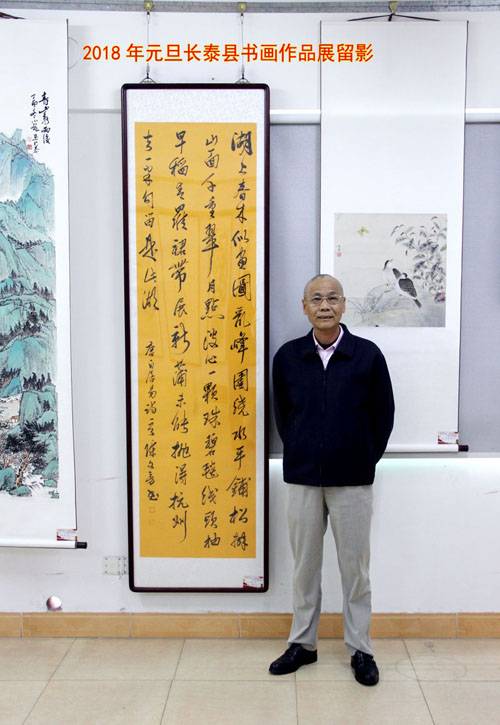 2018年元旦长泰县书画作品展留影
湖上春來似畫圖亂峰圍繞水平鋪松排
山面千重翠月點波心一顆珠碧毯綫頭抽
早稻青羅裙帶展新蒲未能抛得杭州
去一半勾留是此湖
唐白居易詩